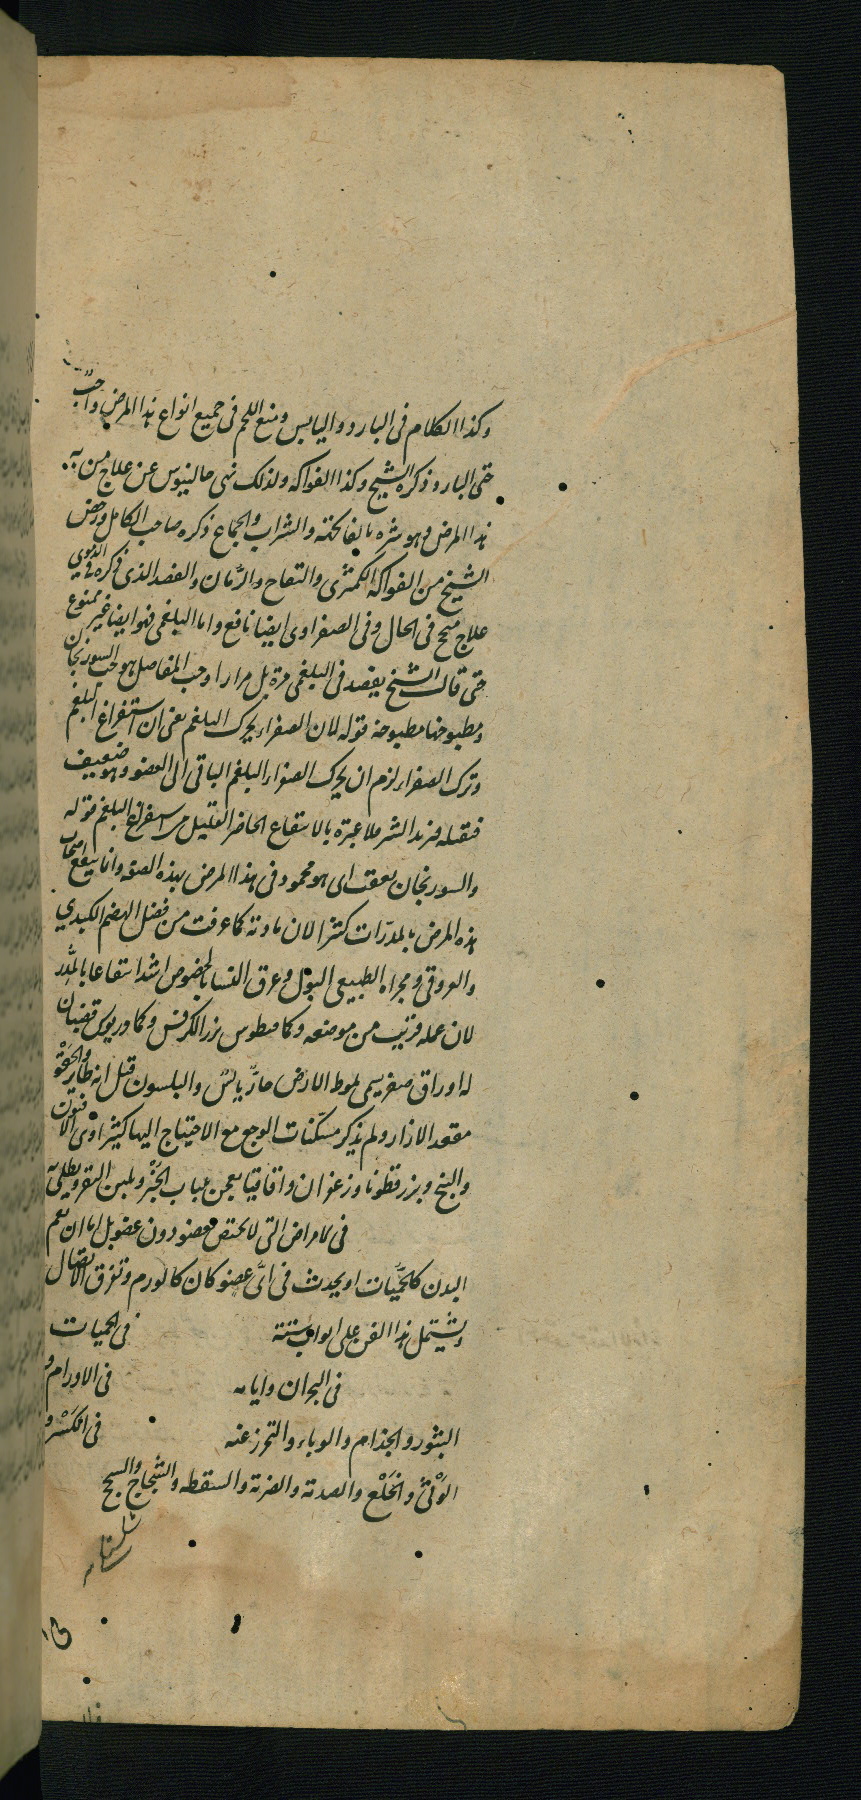 وكذا الكلام فى البارد واليابس ومنع اللحم فى جميع انواع هذا المرض واجب
حتى البارد ذكره الشيخ وكذا الفواكه ولذلك نهى جالينوس عن علاج من به
هذا المرض وهو شره بالفاكهة والشراب والجماع ذكره صاحب الكامل ورخص
الشيخ من الفواكه الكمثرى والتفاح والرمان والفصد الذى ذكره فى الدموى
علاج منجح فى الحال وفى الصفراوى ايضا نافع واما البلغمى فهو ايضا غير ممنوع
حتى قال الشيخ يفصد فى البلغمى مرة بل مرارا وحب المفاصل هو حب السورنجان
ومطبوخها مطبوخه قوله لان الصفراء يحرك البلغم يعنى ان استفراغ البلغم
وترك الصفراء لزم ان يحرك الصفراء البلغم الباقى الى العضو وهو ضعيف
فتقبله فيزيد الشر فلا عبرة بالانتفاع الحاضر القليل من استفراغ البلغم قوله
والسورنجان يعقب اى هو محمود فى هذا المرض بهذه الصفة وانما ينفع اصحاب
هذه المرض بالمدرّات كثيرا لان مادته كما عرفت من فضل الهضم الكبدي
والعروقى ومجراه الطبيعى البول وعرق النسا بالخصوص اشد انتفاعا بالمُدِر
لان عمله قريب من موضعه وكمافيطوس بزر الكرفس وكمادريوس قضبان
له اوراق صغر يسمى بلوط الارض حارّ يابس والبلسون قيل انه طائر والحَقْو
مقعد الازار ولم يذكر مسكّنات الوجع مع الاحتياج اليها كثيرا وهى الافيون
والبنج وبزر قطونا وزعفران واقاقيا يعجن بلباب الخُبْز وبلبن البقر ويطلى به
فى الامراض التى لا تختص بعضو دون عضو بل اما ان تعم
البدن كالحُمَّيات او يحدث فى اىّ عضو كان كالورم وتفرق الاتصال
ويشتمل هذا الفن على ابواب ستة فى الحميات
فى البحران وايامه فى الاورام و
البثور والجذام والوباء والتحرز عنه فى الكَسْر و
الوَثْئ والخَلْع والصدمة والضربة والسقطه والشجاج والسحج